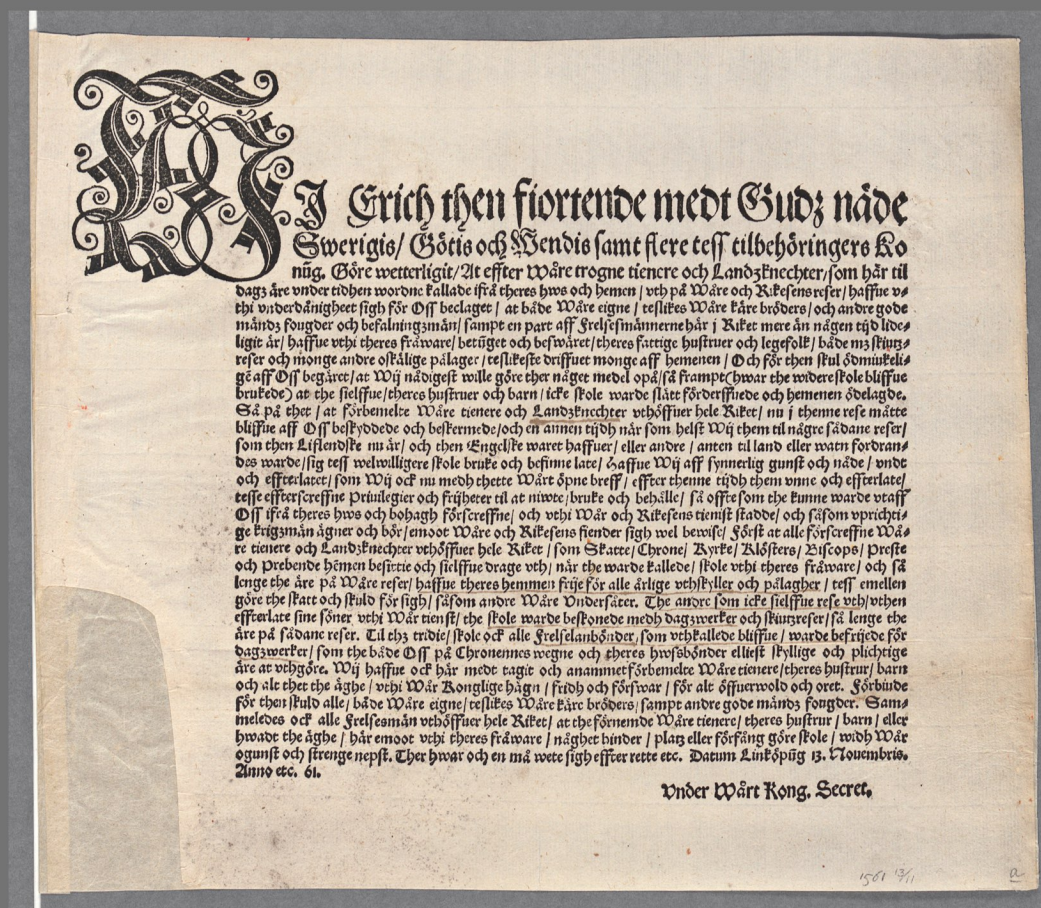 WJ Erich then fiortende medt Gudz nåde
Swerigis/ Götis och Wendis samt flere tess tilbehöringers Ko
nũg. Göre wetterligit/ At effter Wåre trogne tienere och Landzknechter/ som här til
dagz äre vnder tidhen wordne kallade ifrå theres hws och hemen/ vth på Wåre och Rikesens reser/ haffue v-
thi vnderdånigheet sigh för Oss beclaget/ at både Wåre eigne/ teslikes Wåre käre bröders/ och andre gode
mändz fougder och befalningzmän/ sampt en part aff Frelsesmännerne här j Riket mere än någen tijd lide-
ligit är/ haffue vthi theres fråware/ betũget och beswäret/ theres fattige hustruer och legefolk/ både mz skiutz-
reser och monge andre oskälige pålager/ teslikeste driffuet monge aff hemenen/ Och för then skul ödmiukeli-
gẽ aff Oss begäret/ at Wij nådigest wille göre ther någet medel opå/ så frampt (hwar the widere skole bliffue
brukede) at the sielffue/ theres hustruer och barn/ icke skole warde slätt förderffuede och hemenen ödelagde.
Så på thet/ at förbemelte Wåre tienere och Landzknechter vthöffuer hele Riket/ nu i thenne rese måtte
bliffue aff Oss beskyddede och beskermede/ och en annen tijdh när som helst Wij them til någre sådane reser/
som then Liflendske nu är/ och then Engelske waret haffuer/ eller andre/ anten til land eller watn fordran-
des warde/ sig tess welwilligere skole bruke och befinne late/ Haffue Wij aff synnerlig gunst och nåde/ vndt
och effterlatet/ som Wij ock nu medh thette Wårt öpne breff/ effter thenne tijdh them vnne och effterlate/
tesse effterscreffne Priuilegier och frijheter til at niwte/ bruke och behålle/ så offte som the kunne warde vtaff
Oss ifrå theres hws och bohagh förscreffne/ och vthi Wår och Rikesens tienist stadde/ och såsom vprichti-
ge krigzmän ägner och bör/ emoot Wåre och Rikesens fiender sigh wel bewise/ Först at alle förscreffne Wå-
re tienere och Landzknechter vthöffuer hele Riket/ som Skatte/ Chrone/ Kyrke/ Klösters/ Biscops/ Preste
och Prebende hemen besittie och sielffue drage vth/ när the warde kallede/ skole vthi theres fråware/ och så
lenge the äre på Wåre reser/ haffue theres hemmen frije för alle årlige vthskyller och pålagher/ tess emellen
göre the skatt och skuld för sigh/ såsom andre Wåre Vndersåter. The andre som icke sielffue rese vth/ vthen
effterlate sine söner vthi Wår tienst/ the skole warde beskonede medh dagzwerker och skiutzreser/ så lenge the
äre på sådane reser. Til thz tridie/ skole ock alle Frelselanbönder/ som vthkallede bliffue/ warde befrijede för
dagzwerker/ som the både Oss på Chronennes wegne och theres hwsbönder elliest skyllige och plichtige
äre at vthgöre. Wij haffue ock här medt tagit och anammet förbemelte Wåre tienere/ theres hustrur/ barn
och alt thet the äghe/ vthi Wår Konglige hägn/ fridh och förswar/ för alt öffuerwold och oret. Förbiude
för then skuld alle/ både Wåre eigne/ teslikes Wåre käre bröders/ sampt andre gode mändz fougder. Sam-
meledes ock alle Frelsesmän vthöffuer hele Riket/ at the förnemde Wåre tienere/ theres hustrur/ barn/ eller
hwadt the äghe/ här emoot vthi theres fråware/ någhet hinder/ platz eller förfång göre skole/ widh Wår
ogunst och strenge nepst. Ther hwar och en må wete sigh effter rette etc. Datum Linköpũg 13. Nouembris.
Anno etc. 61.
Vnder Wårt Kong. Secret.
1561 13/11
a